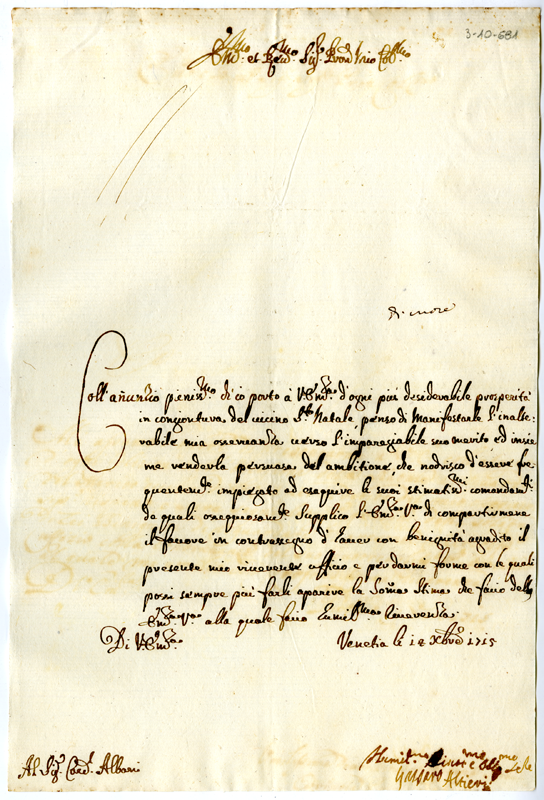 3-10-681
Em.mo et Rev.mo Sig.r Pron Mio Col.mo
Coll'añuntio pieniss.mo ch'io porto à V. Em.za d'ogni più desiderabile prosperità
in congiontura del vicino S.to Natale penso di Manifestarle l'inalte:
rabile mia osservanza verso l'impareggiabile suo merito, ed insie
me renderla persuasa del ambitione, che nodrisco d'essere fre
quentem.te impiegato ad esequire li suoi stimatis.mi comandam.ti
de quali ossequiosam.te supplico l'Em.za V.ra di compartirmene
il favore in contrasegno d'haver con benignità agradito il
presente mio riverente ufficio e per darmi forme con le quali
possi sempre più farli apparire la Som̃a Stima che facio dell
Em.za V.ra alla quale facio humil.ma Riverenza
Di V. Em.za Venetia li 12 Xbre 1715
Al Sig.r Card.l Albani
Humil.mo
Altieri